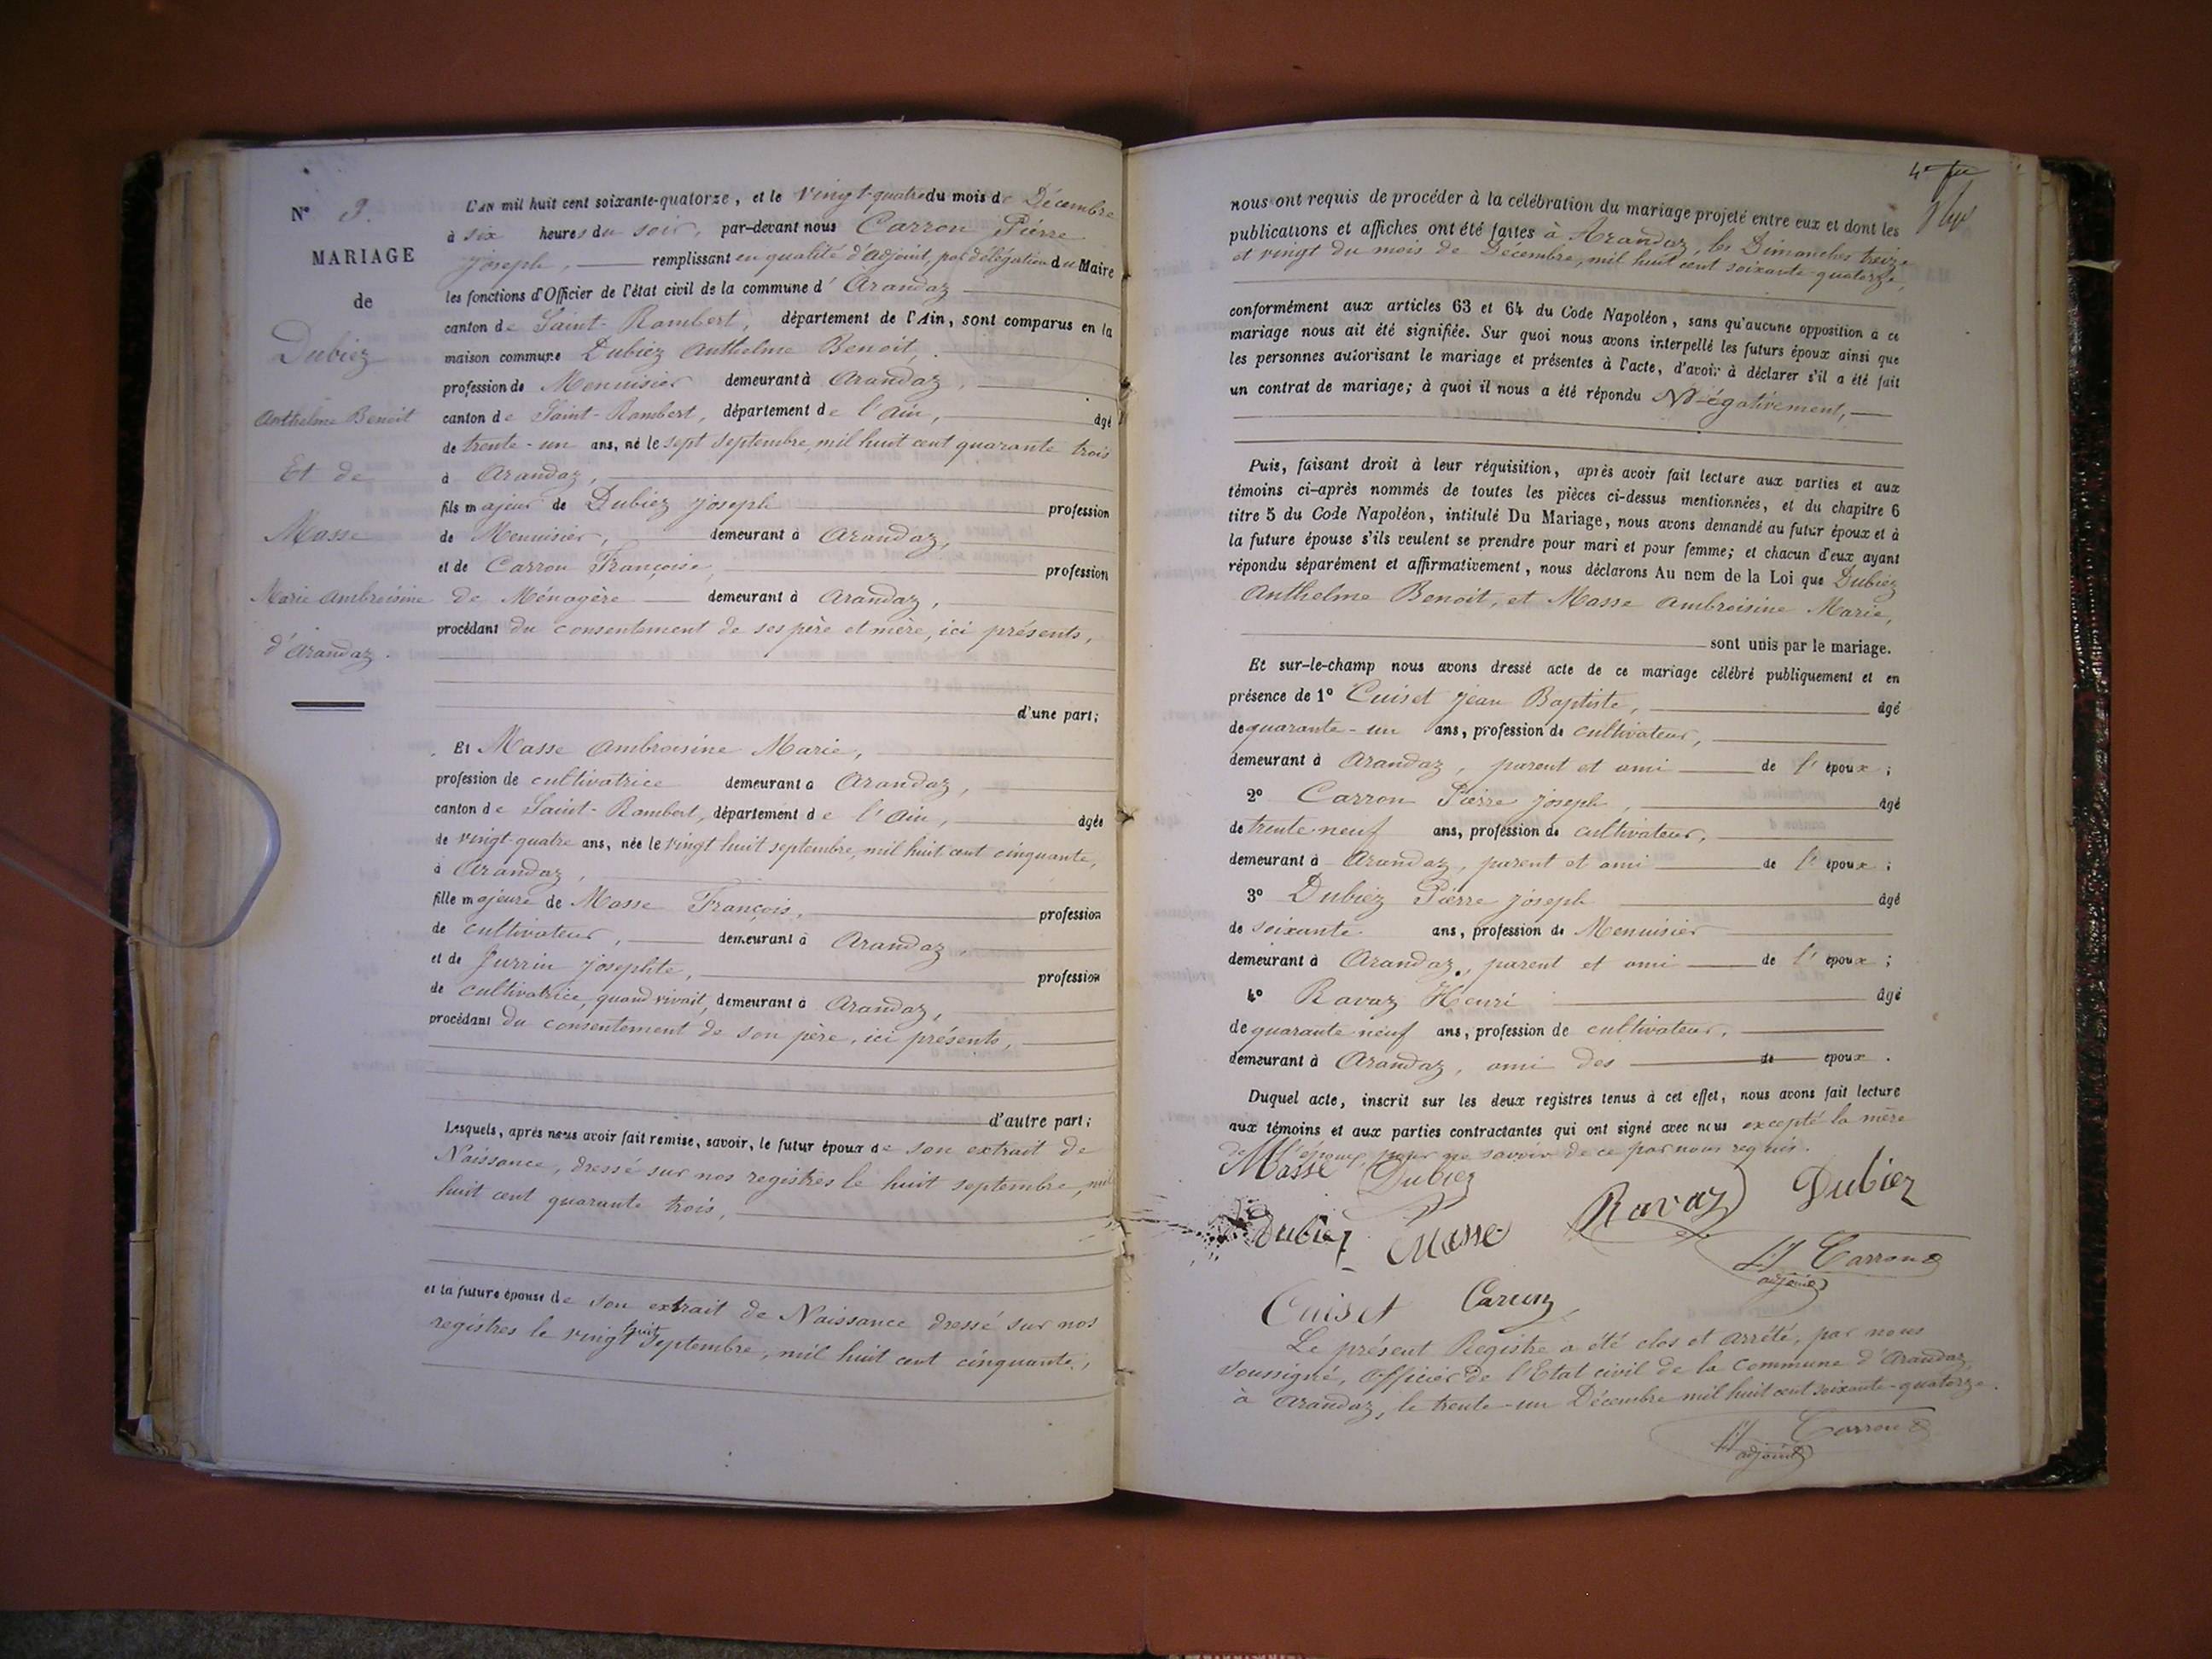 N° 9.
MARIAGE
de
Dubiez
Anthelme Benoit
Et de
Masse
Marie Ambroisine
d'Arandaz.
L'AN mil huit cent soixante-quatorze, et le Vingt-quatre du mois de Décembre
à six heures du soir, par-devant nous Carron Pierre
Joseph, remplissant en qualité d'adjoint, par délégation du Maire
les fonctions d'Officier de l'état civil de la commune d'Arandaz
canton de Saint-Rambert, département de l'Ain, sont comparus en la
maison commune Dubiez Anthelme Benoit,
profession de Menuisier demeurant à Arandaz,
canton de Saint-Rambert, département de l'Ain, âgé
de trente-un ans, né le sept septembre mil huit cent quarante trois
à Arandaz,
fils majeur de Dubiez Joseph profession
de Menuisier, demeurant à Arandaz,
et de Carron Françoise, profession
de Ménagère demeurant à Arandaz,
procédant du consentement de ses père et mère, ici présents,
d'une part;
Et Masse Ambroisine Marie,
profession de cultivatrice demeurant à Arandaz,
canton de Saint-Rambert, département de l'Ain, âgée
de vingt-quatre ans, née le vingt huit septembre, mil huit cent cinquante,
à Arandaz,
fille majeure de Masse François, profession
de cultivateur, demeurant à Arandaz,
et de Jurrin Josephte, profession
de cultivatrice, quand vivait, demeurant à Arandaz,
procédant du consentement de son père, ici présents,
d'autre part;
Lesquels, après nous avoir fait remise, savoir, le futur époux de son extrait de
Naissance, dressé sur nos registres le huit septembre, mil
huit cent quarante trois,
et la future épouse de son extrait de Naissance dressé sur nos
registres le vingt huit septembre, mil huit cent cinquante,
nous ont requis de procéder à la célébration du mariage projeté entre eux et dont les
publications et affiches ont été faites à Arandaz, les Dimanches treize
et vingt du mois de Décembre, mil huit cent soixante-quatorze,
conformément aux articles 63 et 64 du Code Napoléon, sans qu'aucune opposition à ce
mariage nous ait été signifiée. Sur quoi nous avons interpellé les futurs époux ainsi que
les personnes autorisant le mariage et présentes à l'acte, d'avoir à déclarer s'il a été fait
un contrat de mariage; à quoi il nous a été répondu Négativement,
Puis, faisant droit à leur réquisition, après avoir fait lecture aux parties et aux
témoins ci-après nommés de toutes les pièces ci-dessus mentionnées, et du chapitre 6
titre 5 du Code Napoléon, intitulé Du Mariage, nous avons demandé au futur époux et à
la future épouse s'ils veulent se prendre pour mari et pour femme; et chacun d'eux ayant
répondu séparément et affirmativement, nous déclarons Au nom de la Loi que Dubiez
Anthelme Benoit, et Masse Ambroisine Marie,
sont unis par le mariage.
Et sur-le-champ nous avons dressé acte de ce mariage célébré publiquement et en
présence de 1° Cuiset Jean Baptiste, âgé
de quarante-un ans, profession de cultivateur,
demeurant à Arandaz, parent et ami de l'époux;
2° Carron Pierre Joseph, âgé
de trente neuf ans, profession de cultivateur,
demeurant à Arandaz, parent et ami de l'époux;
3° Dubiez Pierre Joseph âgé
de soixante ans, profession de Menuisier
demeurant à Arandaz, parent et ami de l'époux;
4° Ravaz Henri âgé
de quarante neuf ans, profession de cultivateur,
demeurant à Arandaz, ami des de époux.
Duquel acte, inscrit sur les deux registres tenus à cet effet, nous avons fait lecture
aux témoins et aux parties contractantes qui ont signé avec nous excepté la mère
de l'époux, pour ne savoir de ce par nous requis.
Masse Dubiez
Dubiez Masse Ravaz Dubiez
Carron
adjoint
Cuiset
Le présent Registre a été clos et arrêté, par nous
soussigné, Officier de l'Etat civil de la Commune d'Arandaz,
à Arandaz, le trente-un Décembre mil huit cent soixante-quatorze.
Carron
adjoint